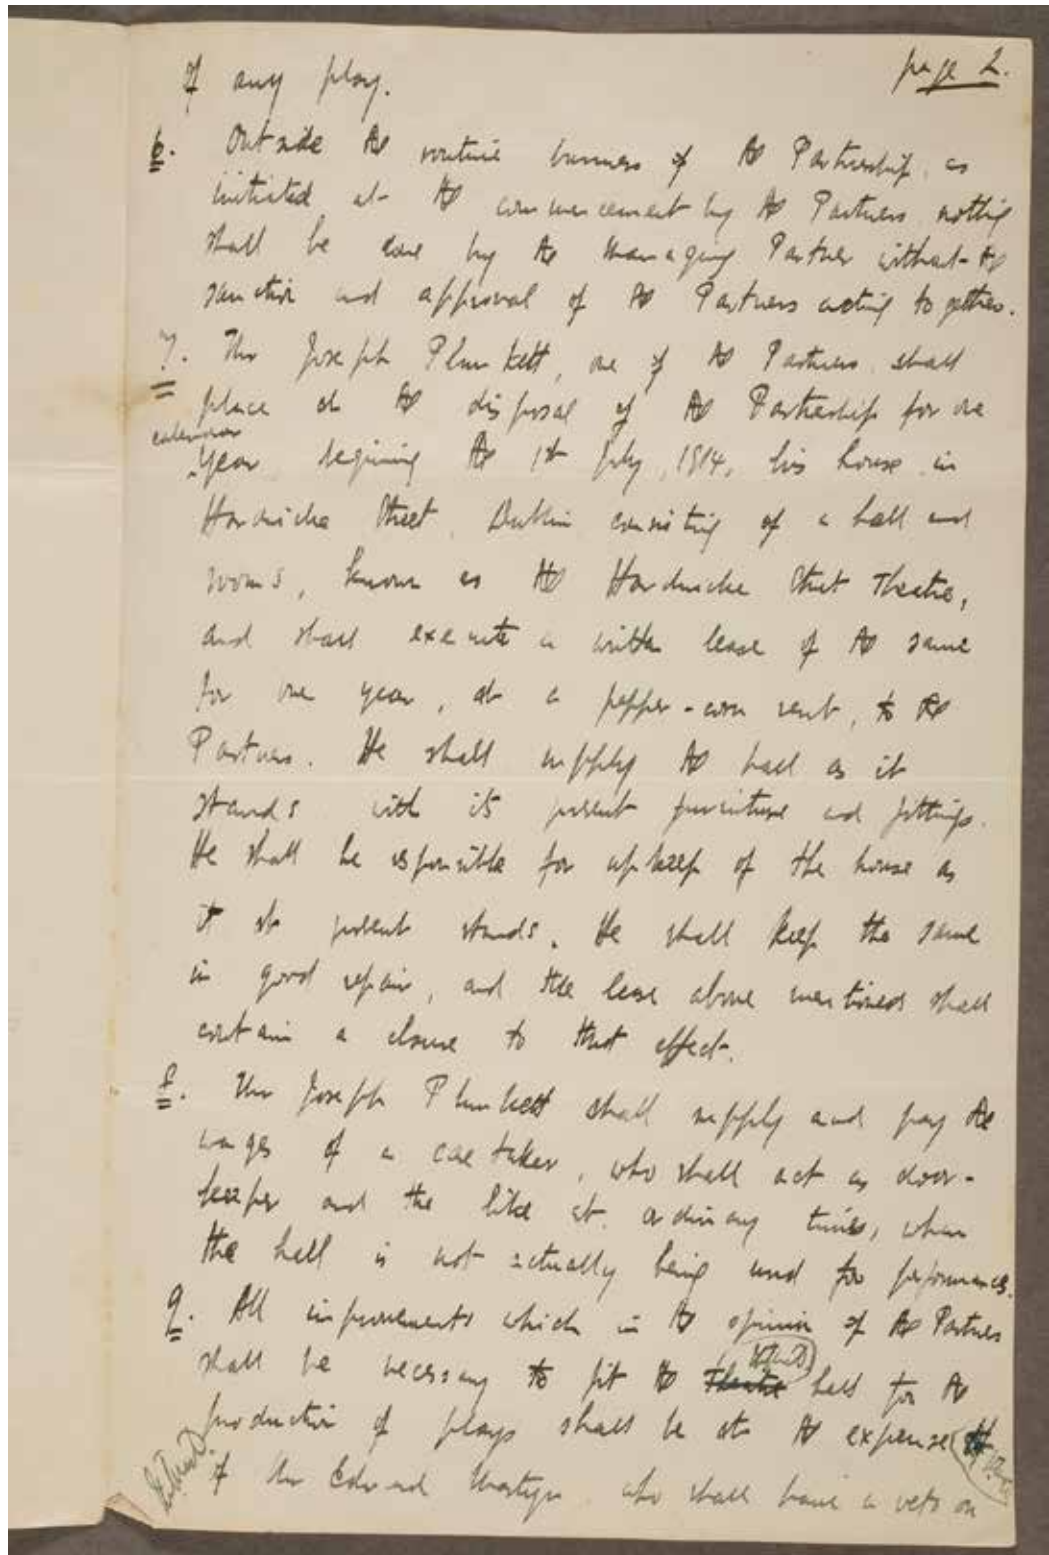 page 2.
of any play.
6. Outside the routine business of the Partnership, as
initiated at the commencement by the Partners, nothing
shall be done by the Managing Partner without the
sanction and approval of the Partners acting together.
7. Mr Joseph Plunkett, one of the Partners, shall
place at the disposal of the Partnership for one
calendar
year, begining the 1st July, 1914, his house in
Hardwicke Street, Dublin consisting of a hall and
rooms, known as the Hardwicke Street Theatre,
and shall execute a written lease of the same
for one year, at a pepper-corn rent, to the
Partners. He shall supply the hall as it
stands with its present furniture and fittings.
He shall be responsible for upkeep of the house as
it at present stands. He shall keep the same
in good repair, and the lease above mentioned shall
contain a clause to that effect.
8. Mr Joseph Plunkett shall supply and pay the
wages of a caretaker, who shall act as door-
keeper and the like at ordinary times, when
the hall is not actually being used for performances.
9. All improvements which in the opinion of the Partners
shall be necessary to fit the Theatre hall for the
production of plays shall be at the expense
of Mr Edward Martyn who shall have a veto on